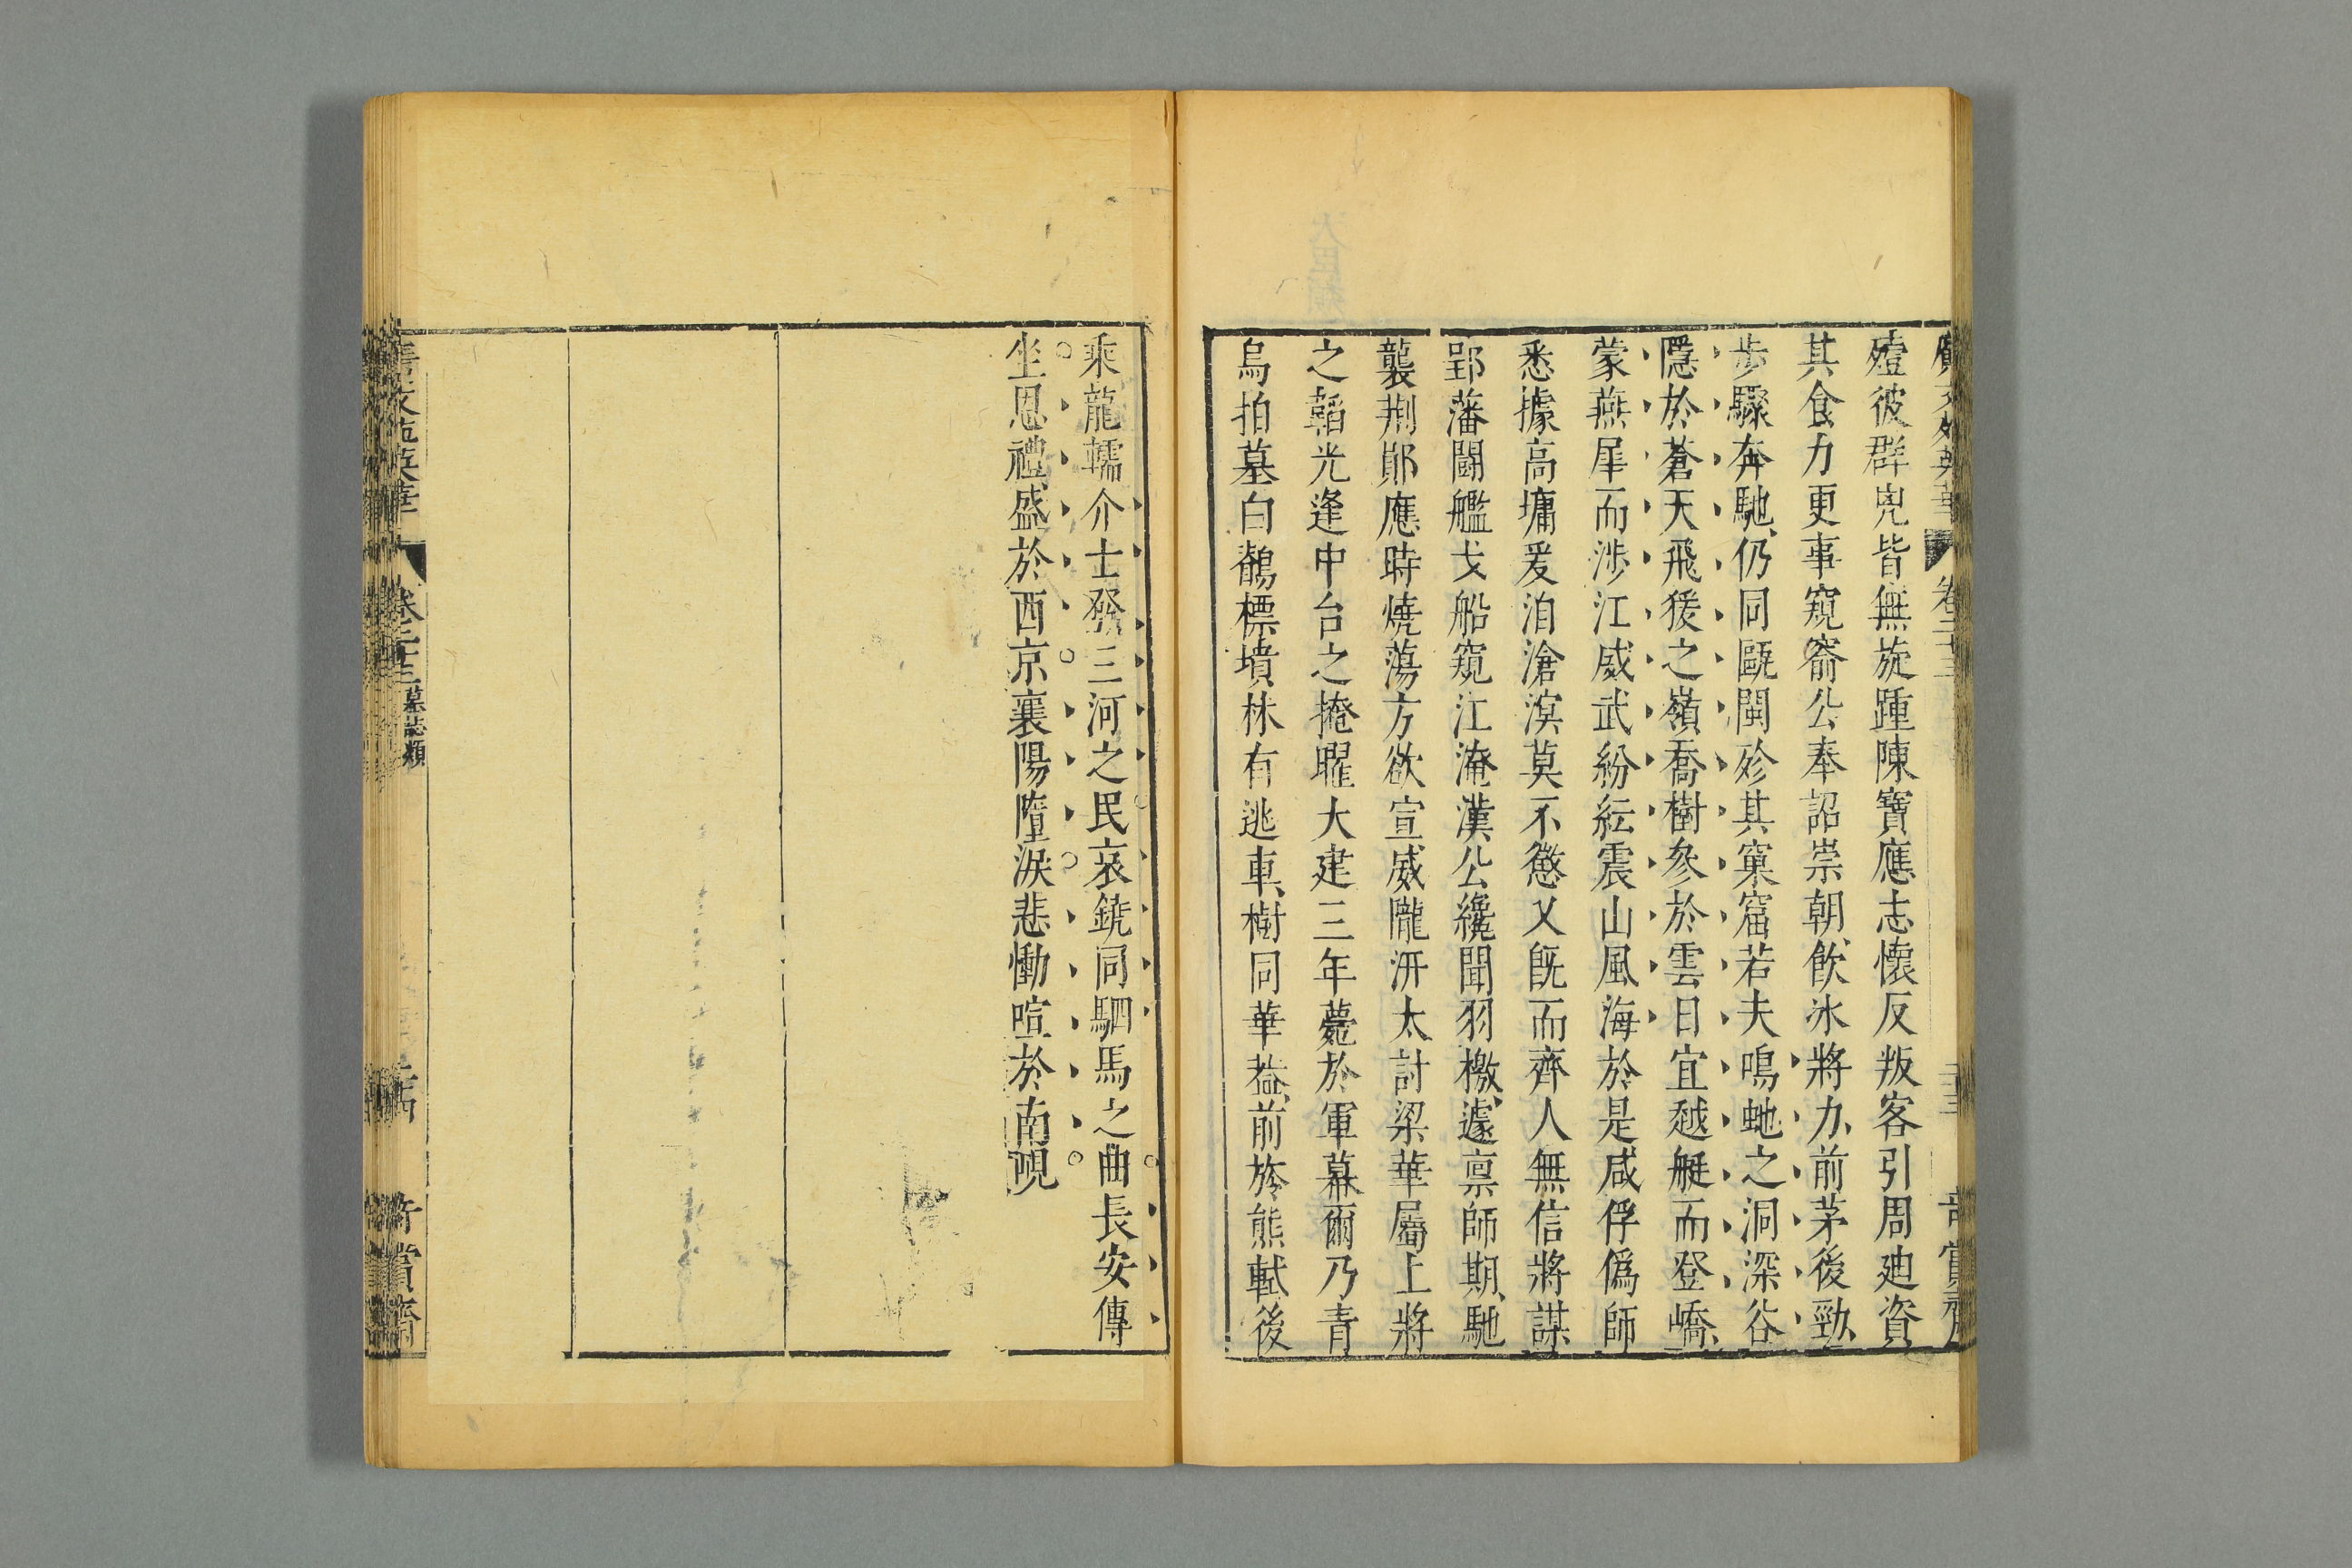 殪彼群兕皆無旋踵陳寶應志懷反叛客引周廸資
其食力更事窺窬公奉詔崇朝飲冰將力前茅後勁
步驟奔馳仍同甌閩殄其窠窟若夫鳴虵之洞深谷
隱於蒼天飛猨之嶺喬樹參於雲日宜越艇而登嶠
蒙燕犀而涉江威武紛紜震山風海於是咸俘僞師
悉據高墉爰洎滄溟莫不懲乂既而齊人無信將謀
郢藩鬪艦戈船窺江淹漢公纔聞羽檄遽禀師期馳
襲荆郧應時燒蕩方欲宣威隴汧太討梁華屬上將
之韜光逢中台之掩曜大建三年薨於軍幕爾乃青
烏拍墓白鶴標墳林有逃車樹同華葢前旍熊軾後
乘龍轜介士發三河之民哀鐃同駟馬之曲長安傳
坐恩禮盛於西京襄陽墮淚悲慟喧於南峴
卷二十三
墓誌類